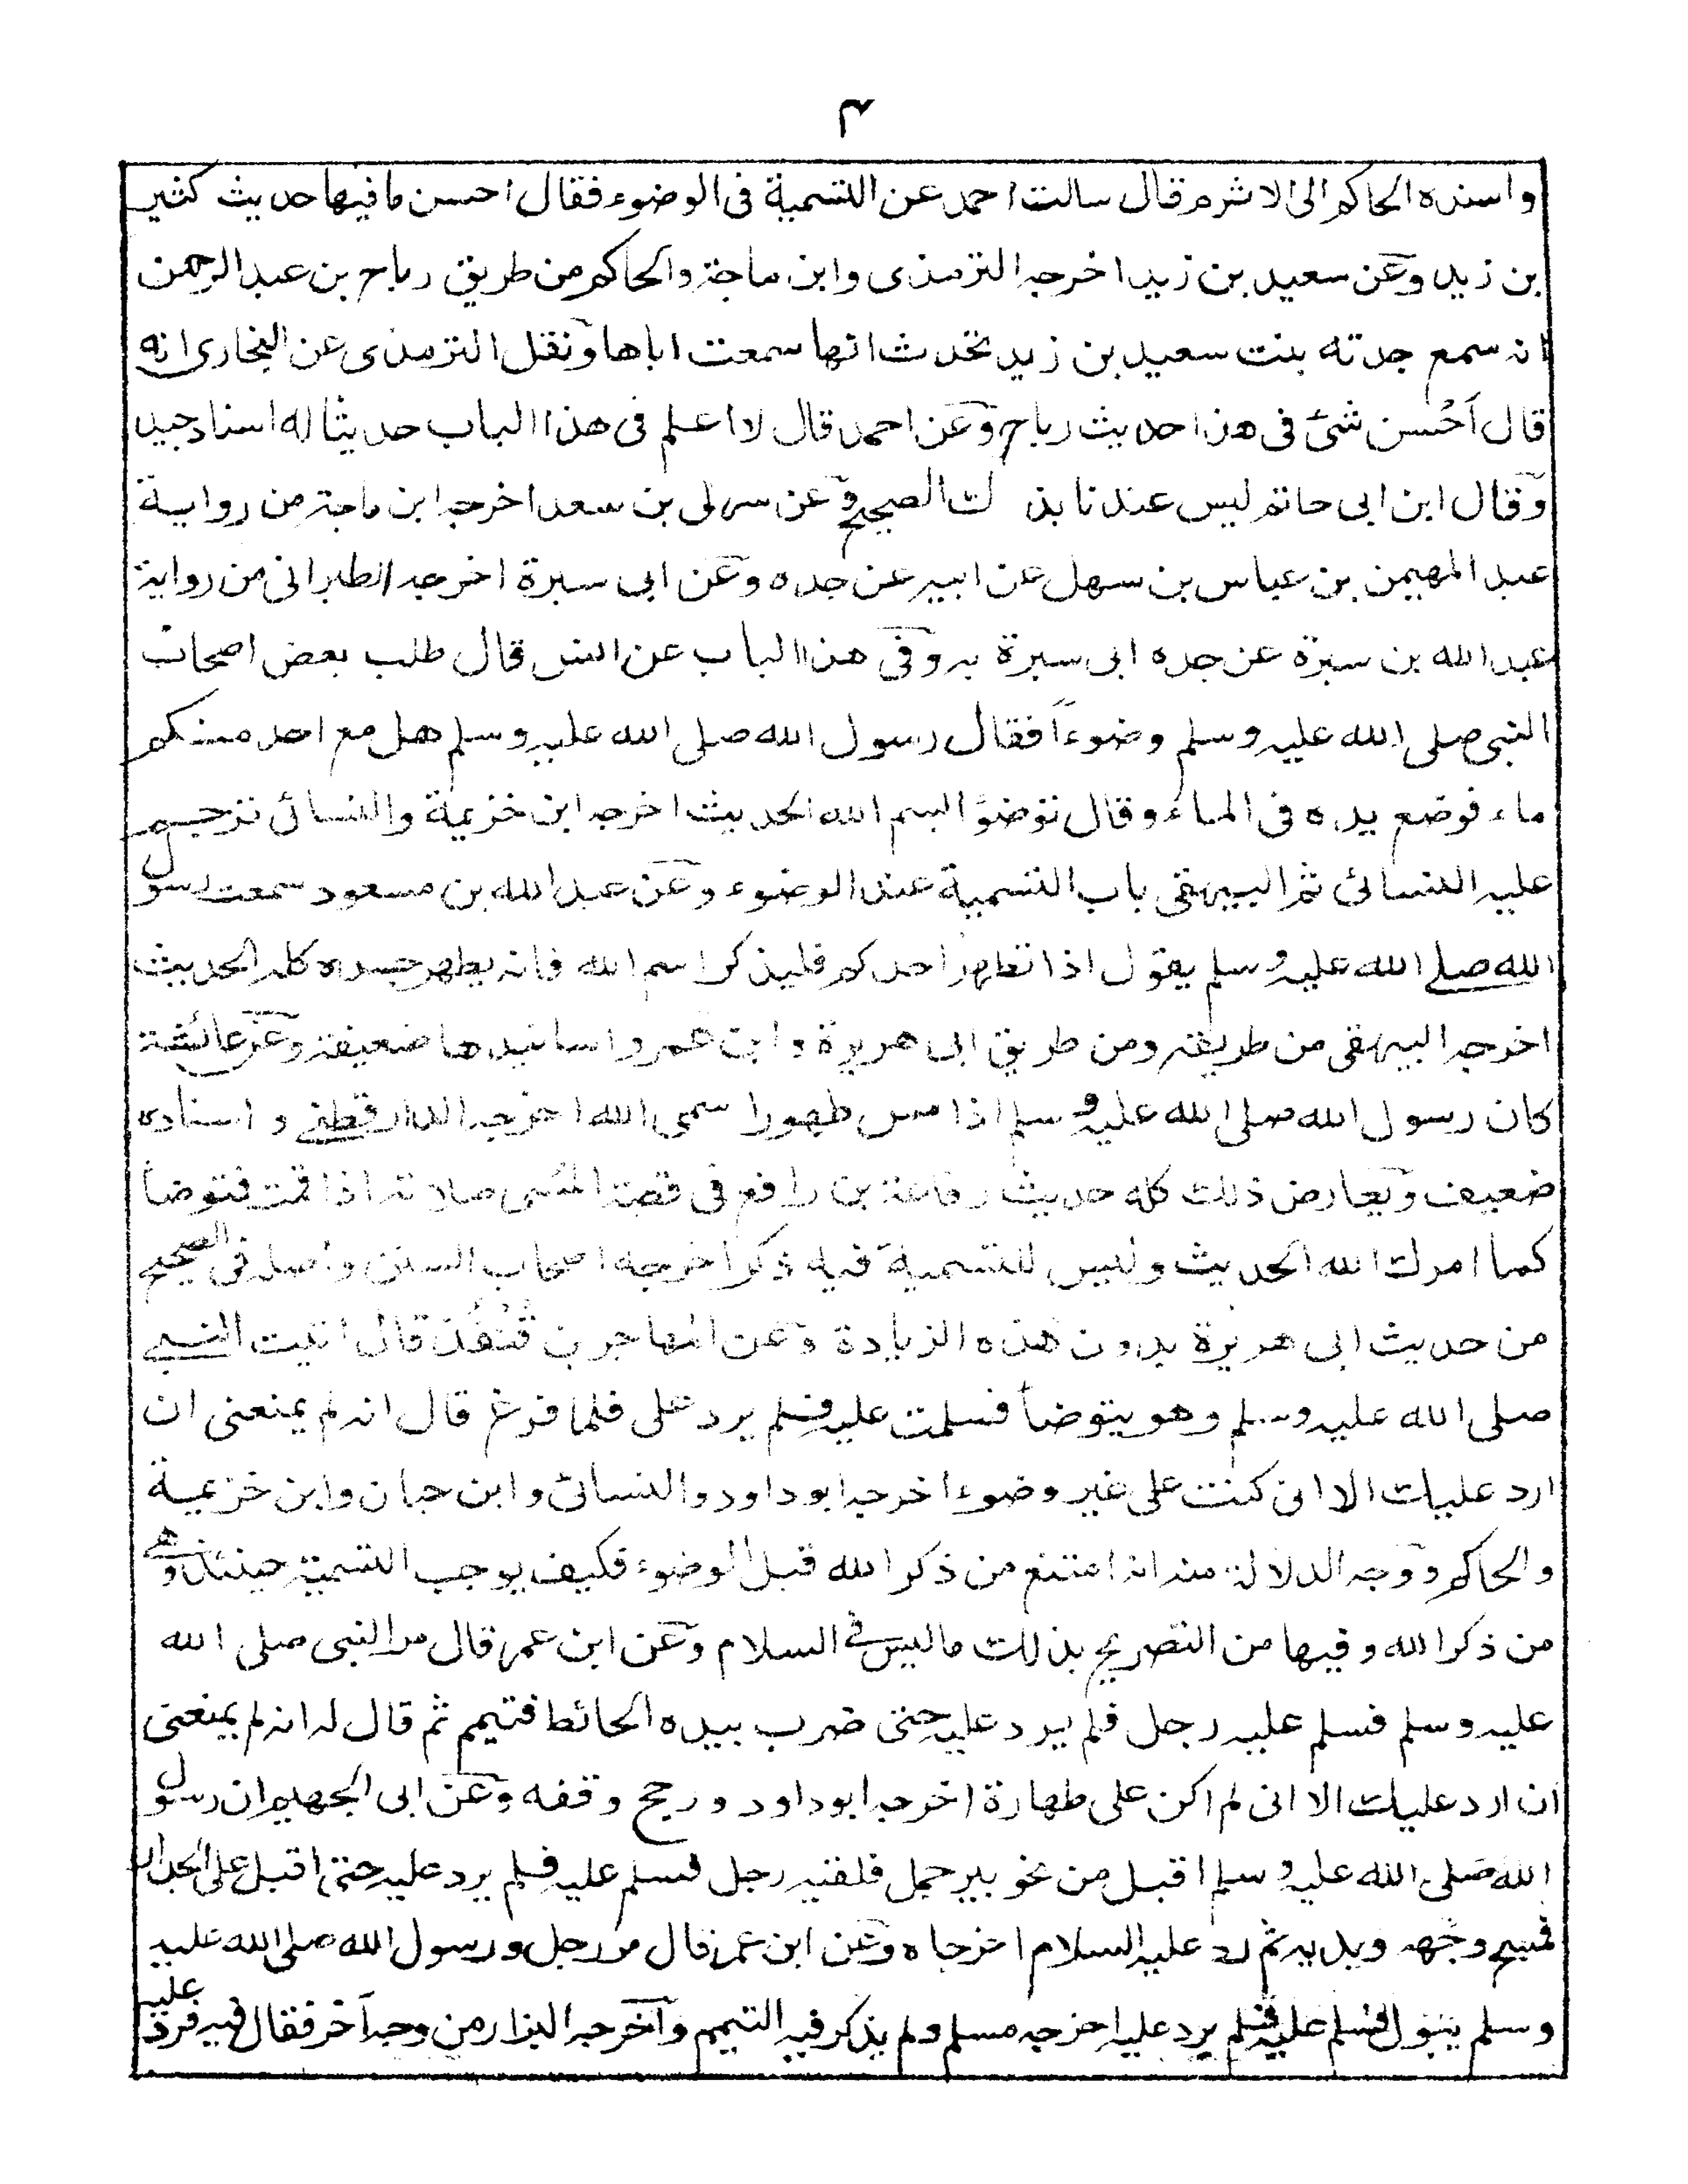 ٣
واسنده الحاكم الى الاثرم قال سالت احمد عن التسمية فى الوضوء فقال احسن ما فيها حديث كثير
بن زيد وعن سعيد بن زيد اخرجه الترمذى وابن ماجة والحاكم من طريق رباح بن عبد الرحمن
انه سمع جدته بنت سعيد بن زيد تحدث انها سمعت اباها ونقل الترمذى عن البخارى انه
قال احسن شئ فى هذا حديث رباح وعن احمد قال لا اعلم فى هذا الباب حديثا له اسناد جيد
وقال ابن ابى حاتم ليس عندنا بذلك الصحيح وعن سهل بن سعد اخرجه ابن ماجة من رواية
عبد المهيمن بن عباس بن سهل عن ابيه عن جده وعن ابى سبرة اخرجه الطبرانى من رواية
عبد الله بن سبرة عن جده ابى سبرة به وفى هذا الباب عن انس قال طلب بعض اصحاب
النبى صلى الله عليه وسلم وضوءاً فقال رسول الله صلى الله عليه وسلم هل مع احد منكم
ماء فوضع يده فى الماء وقال توضؤا بسم الله الحديث اخرجه ابن خزيمة والنسائى ترجم
عليه النسائى ثم البيهقى باب التسمية عند الوضوء وعن عبد الله بن مسعود سمعت رسول
الله صلى الله عليه وسلم يقول اذا تطهر احدكم فليذكر اسم الله فانه يطهر جسده كله الحديث
اخرجه البيهقى من طريقه ومن طريق ابى هريرة وابن عمر واسانيدها ضعيفة وعن عائشة
كان رسول الله صلى الله عليه وسلم اذا مس طهورا سمى الله اخرجه الدارقطنى و اسناده
ضعيف ويعارض ذلك كله حديث رفاعة بن رافع فى قصة المسى صلاته اذا قمت فتوضأ
كما امرك الله الحديث وليس للتسمية فيه ذكر اخرجه اصحاب السنن واصله فى الصحيح
من حديث ابى هريرة بدون هذه الزيادة وعن المهاجر بن قُنْفُذ قال اتيت النبى
صلى الله عليه وسلم وهو يتوضأ فسلمت عليه فلم يرد على فلما فرغ قال انه لم يمنعنى ان
ارد عليك الا انى كنت على غير وضوء اخرجه ابو داود والنسائى وابن حبان وابن خزيمة
والحاكم ووجه الدلالة منه انه امتنع من ذكر الله قبل الوضوء فكيف يوجب التسمية حينئذ وهى
من ذكر الله وفيها من التصريح بذلك ما ليس فى السلام وعن ابن عمر قال مر النبى صلى الله
عليه وسلم فسلم عليه رجل فلم يرد عليه حتى ضرب بيده الحائط فتيمم ثم قال له انه لم يمنعنى
ان ارد عليك الا انى لم اكن على طهارة اخرجه ابو داود ورجح وقفه وعن ابى الجهيم ان رسول
الله صلى الله عليه وسلم اقبل من نحو بير جمل فلقيه رجل فسلم عليه فلم يرد عليه حتى اقبل على الجدار
فمسح وجهه ويديه ثم رد عليه السلام اخرجاه وعن ابن عمر قال مر رجل ورسول الله صلى الله عليه
وسلم يبول فسلم عليه فلم يرد عليه اخرجه مسلم ولم يذكر فيه التيمم واخرجه البزار من وجه آخر فقال فيه فرد عليه